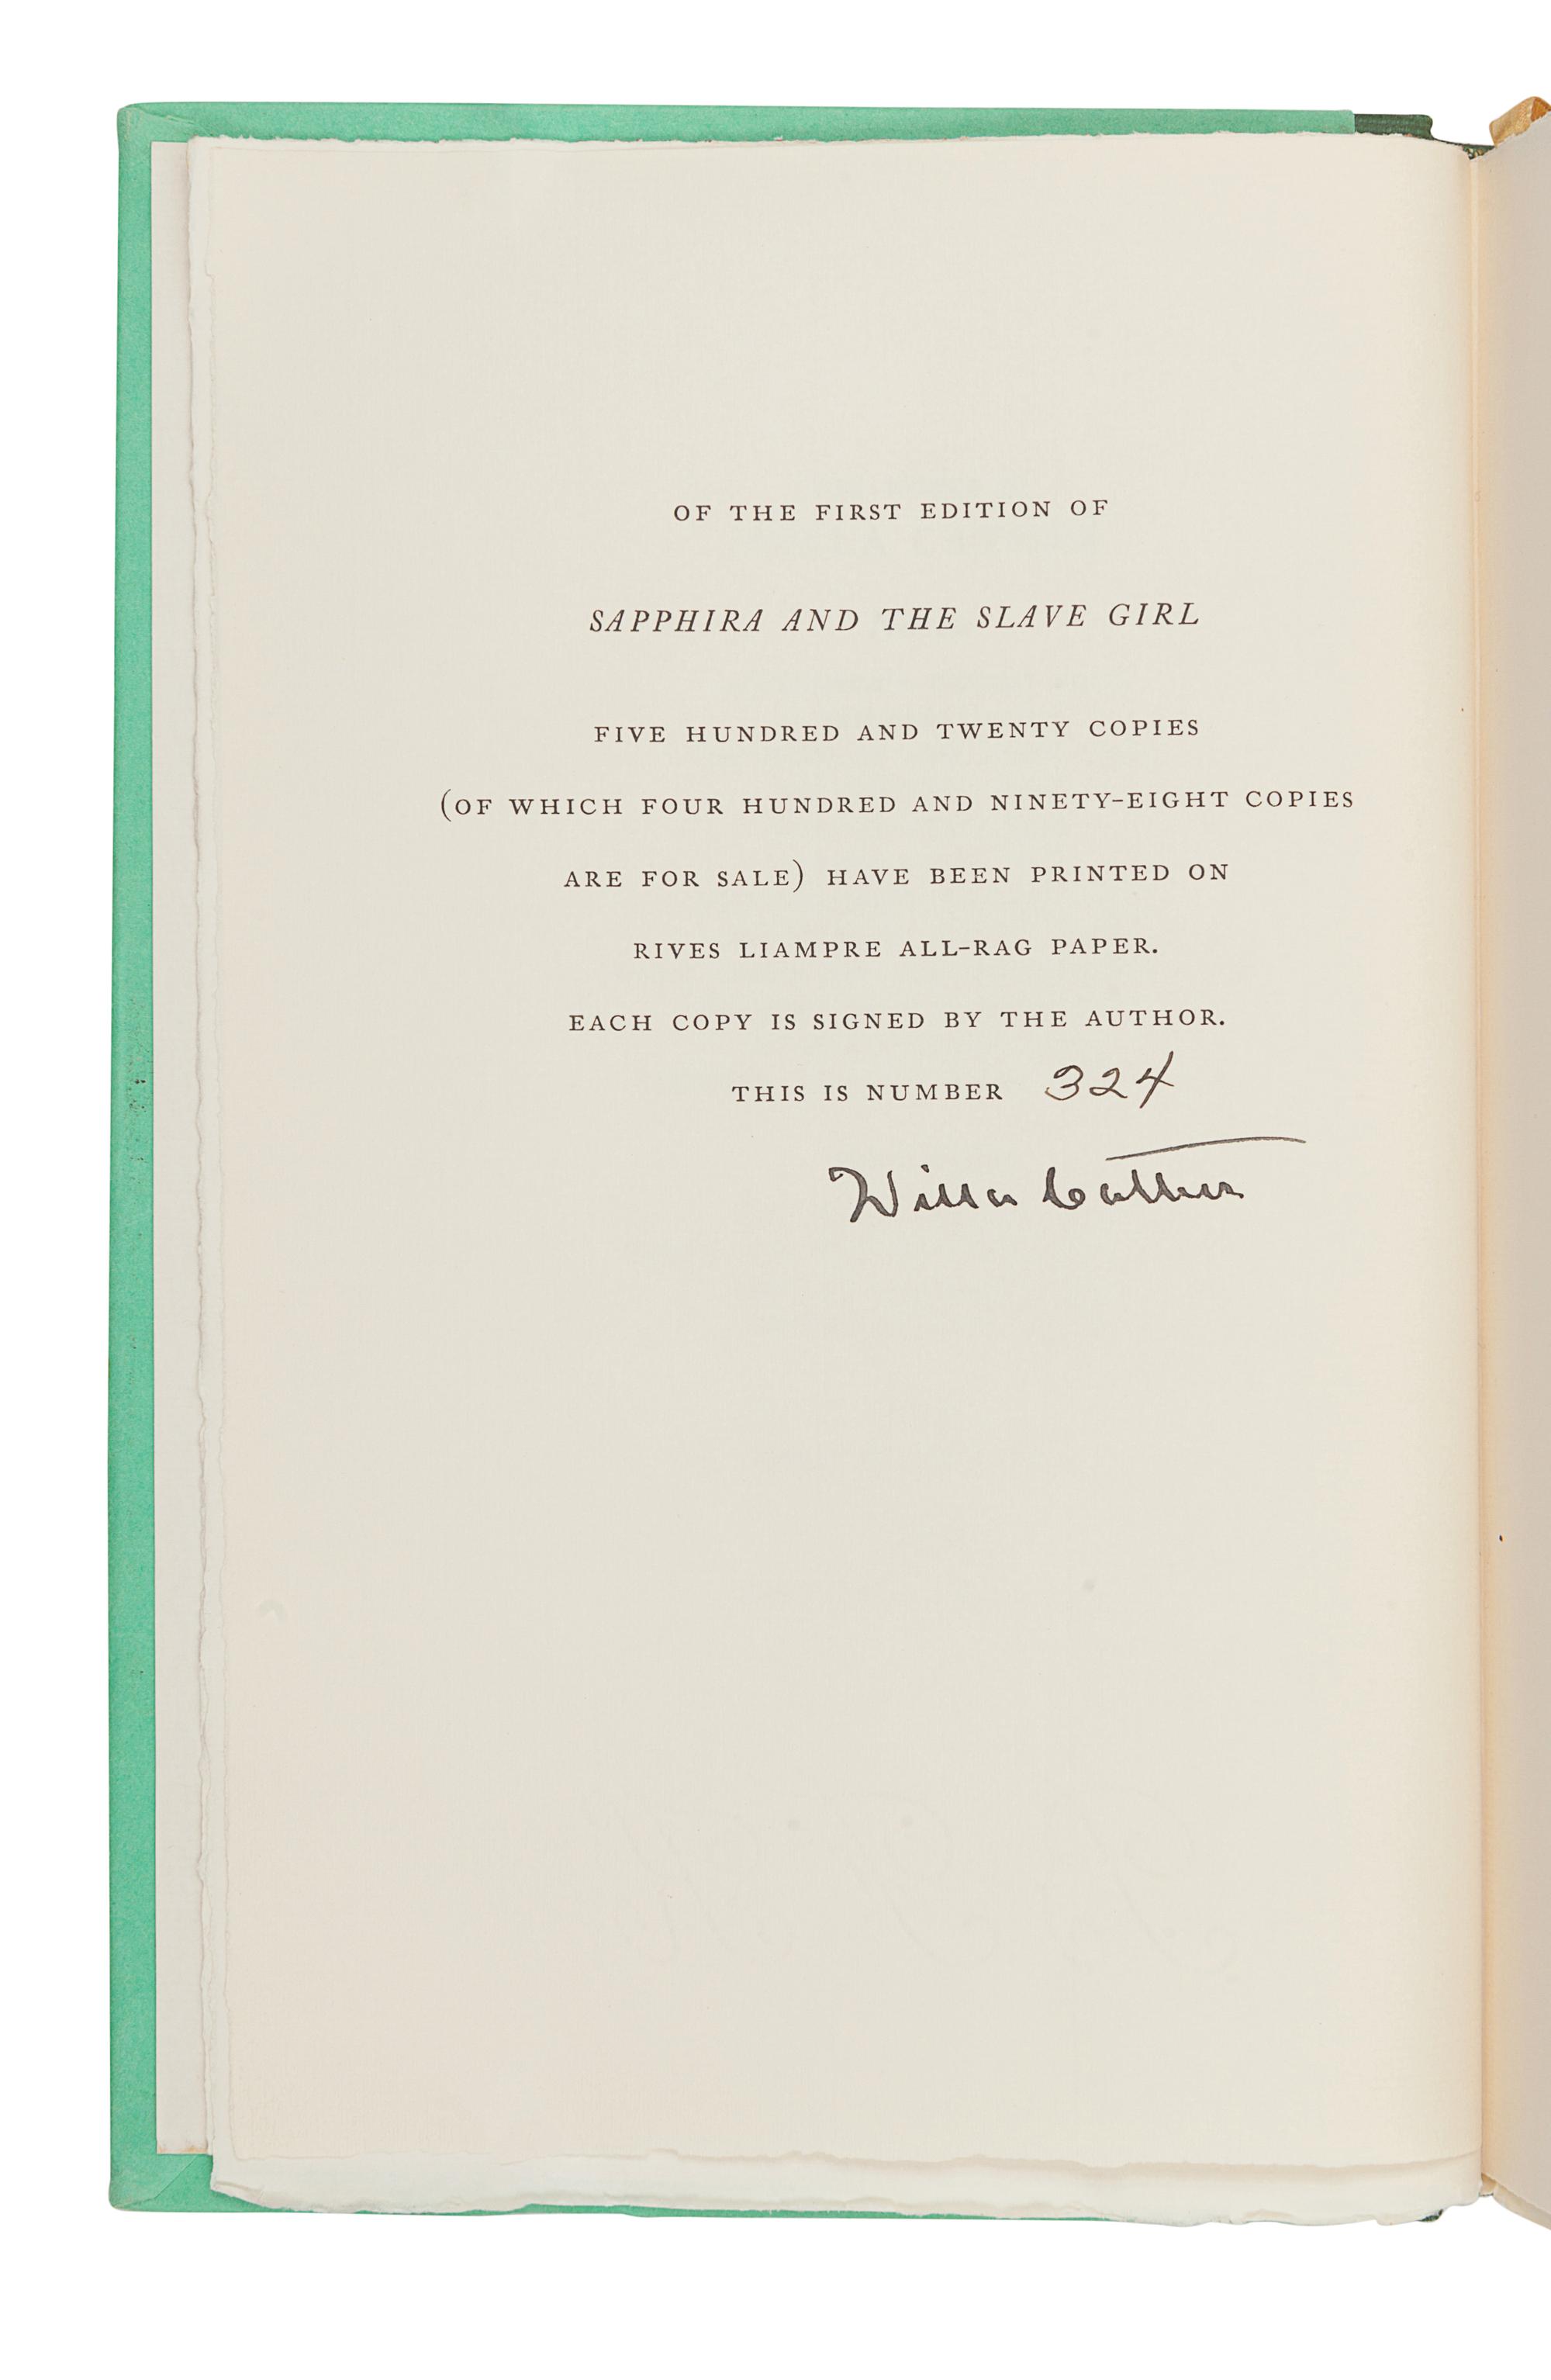 OF THE FIRST EDITION OF
SAPPHIRA AND THE SLAVE GIRL
FIVE HUNDRED AND TWENTY COPIES
(OF WHICH FOUR HUNDRED AND NINETY-EIGHT COPIES
ARE FOR SALE) HAVE BEEN PRINTED ON
RIVES LIAMPRE ALL-RAG PAPER.
EACH COPY IS SIGNED BY THE AUTHOR.
THIS IS NUMBER 324
Willa Cather